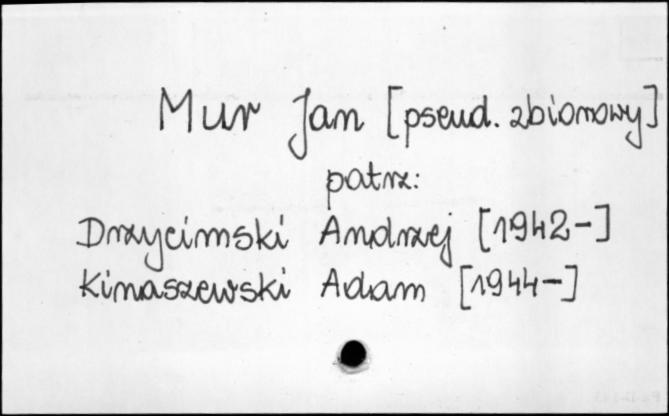 Mur Jan [pseud. zbiorowy]
patrz:
Drzycimski Andrzej [1942-]
Kinaszewski Adam [1944-]